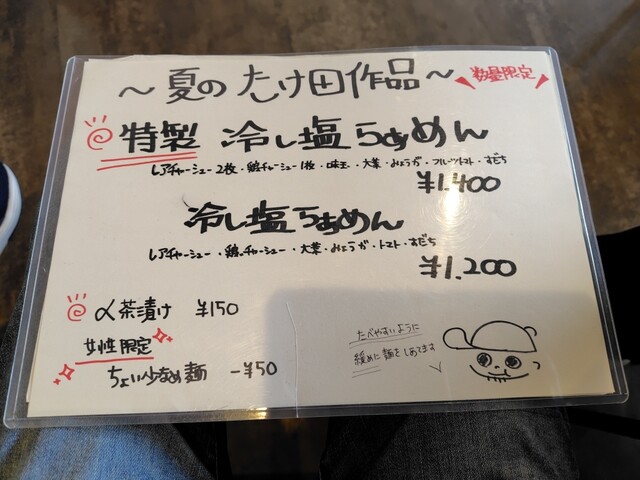 ～夏のたけ田作品～
数量限定
特製 冷し塩らぁめん
レアチャーシュー2枚・鶏チャーシュー1枚・味玉・大葉・みょうが・フルーツトマト・すだち
¥1,400
冷し塩らぁめん
レアチャーシュー・鶏チャーシュー・大葉・みょうが・トマト・すだち
¥1,200
〆茶漬け ¥150
女性限定
ちょい少なめ麺 -¥50
たべやすいように
緩めに麺をしあてます